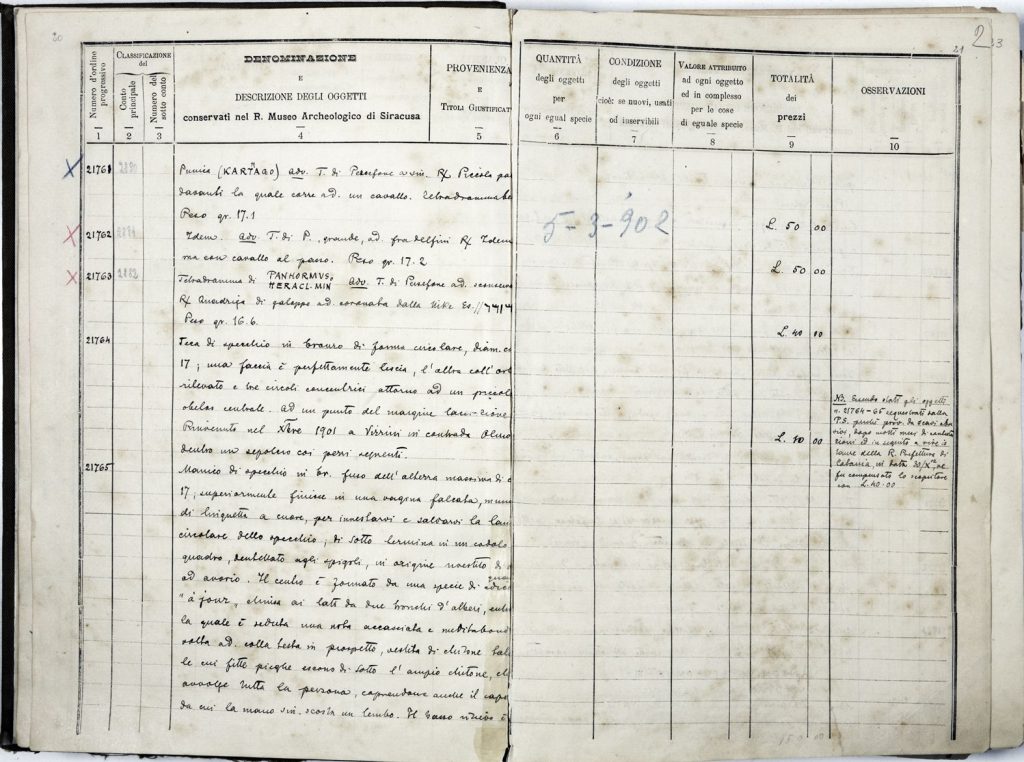 20
21
2
23
Numero d'ordine progressivo
CLASSIFICAZIONE
del
Conto principale
Numero del sotto conto
DENOMINAZIONE
E
DESCRIZIONE DEGLI OGGETTI
conservati nel R. Museo Archeologico di Siracusa
PROVENIENZA
E
TITOLI GIUSTIFICAT
QUANTITÀ
degli oggetti
per
ogni egual specie
CONDIZIONE
degli oggetti
cioè: se nuovi, usati
od inservibili
VALORE ATTRIBUITO
ad ogni oggetto
ed in complesso
per le cose
di eguale specie
TOTALITÀ
dei
prezzi
OSSERVAZIONI
1 2 3 4 5 6 7 8 9 10
21761 2880 Punica (KARTAGO) adv. T. di Persefone a sin. R/ Piccola
davanti la quale corre ad. un cavallo. Tetradramma
Peso gr. 17.1
5-3-902
L. 50 00
21762 Idem. adv. T. di P., grande, ad. fra delfini R/ Idem
ma con cavallo al passo. Peso gr. 17.2
L. 50 00
21763 2882 Tetradramma di PANHORMVS, HERACL. MIN adv. T. di Persefone ad.
R/ Quadriga di galoppo ad. coronata dalla Nike Es.
Peso gr. 16.6.
L. 40 00
21764 Teca di specchio in bronzo di forma circolare, diam. c
17; una faccia è perfettamente liscia, l'altra coll'
rilevato e tre circoli concentrici attorno ad un piccolo
obelos centrale. Ad un punto del margine
Rinvenuto nel Xbre 1901 a Vizzini in contrada
dentro un sepolcro coi pezzi seguenti.
L. 40 00
NB. Essendo stati gli oggetti
n. 21764-65 sequestrati dalla
P.S. perchè prov. da scavi
dopo molti mesi di
ed in seguito a
della R. Prefettura di
Catania, in data
fu compensato lo scopritore
con L. 40.00
21765 Manico di specchio in br. fuso dell'altezza massima di c
17; superiormente finisce in una vagina falcata,
di linguetta a cuore, per innestarvi e saldarvi la
circolare dello specchio; di sotto termina in un codolo
quadro, dentellato agli spigoli, in origine rivestito di
ad avorio. Il centro è formato da una specie di
"à jour, chiusa ai lati da due tronchi d'alberi,
la quale è seduta una accasciata e
volta ad. colla testa in prospetto, vestita di chitone
le cui fitte pieghe escono di sotto l'ampio chitone,
avvolge tutta la persona, coprendone anche il capo
da cui la mano sin. scosta un lembo. Il